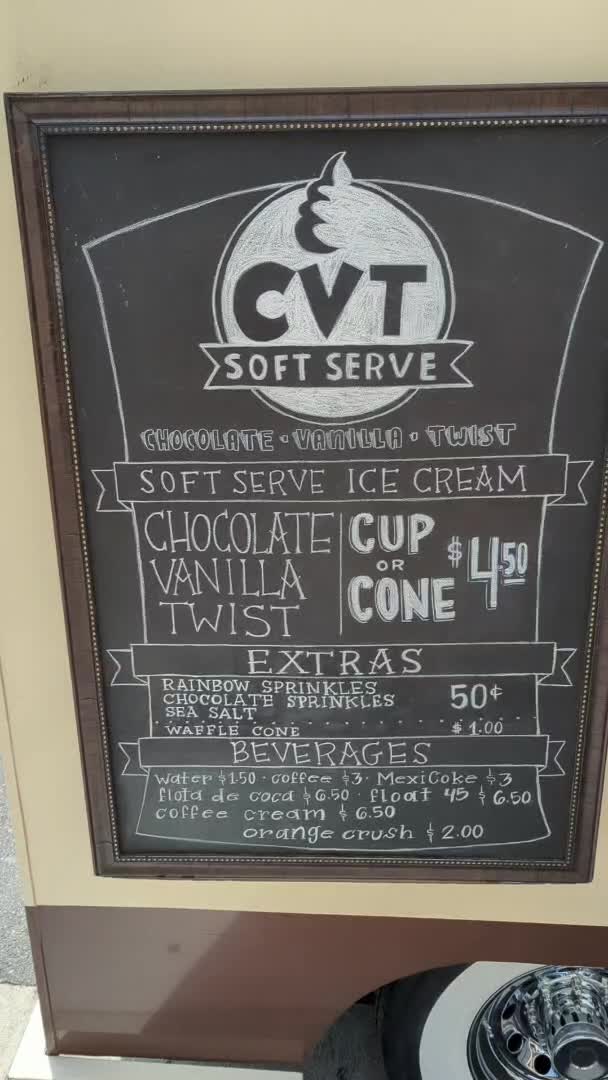 CVT
SOFT SERVE
CHOCOLATE · VANILLA · TWIST
SOFT SERVE ICE CREAM
CHOCOLATE
VANILLA
TWIST
CUP
OR
CONE
$4.50
EXTRAS
RAINBOW SPRINKLES
CHOCOLATE SPRINKLES
SEA SALT
50¢
WAFFLE CONE $1.00
BEVERAGES
water $1.50 · coffee $3 · Mexicoke $3
flota de coca $6.50 · float 45 $6.50
coffee cream $6.50
orange crush $2.00